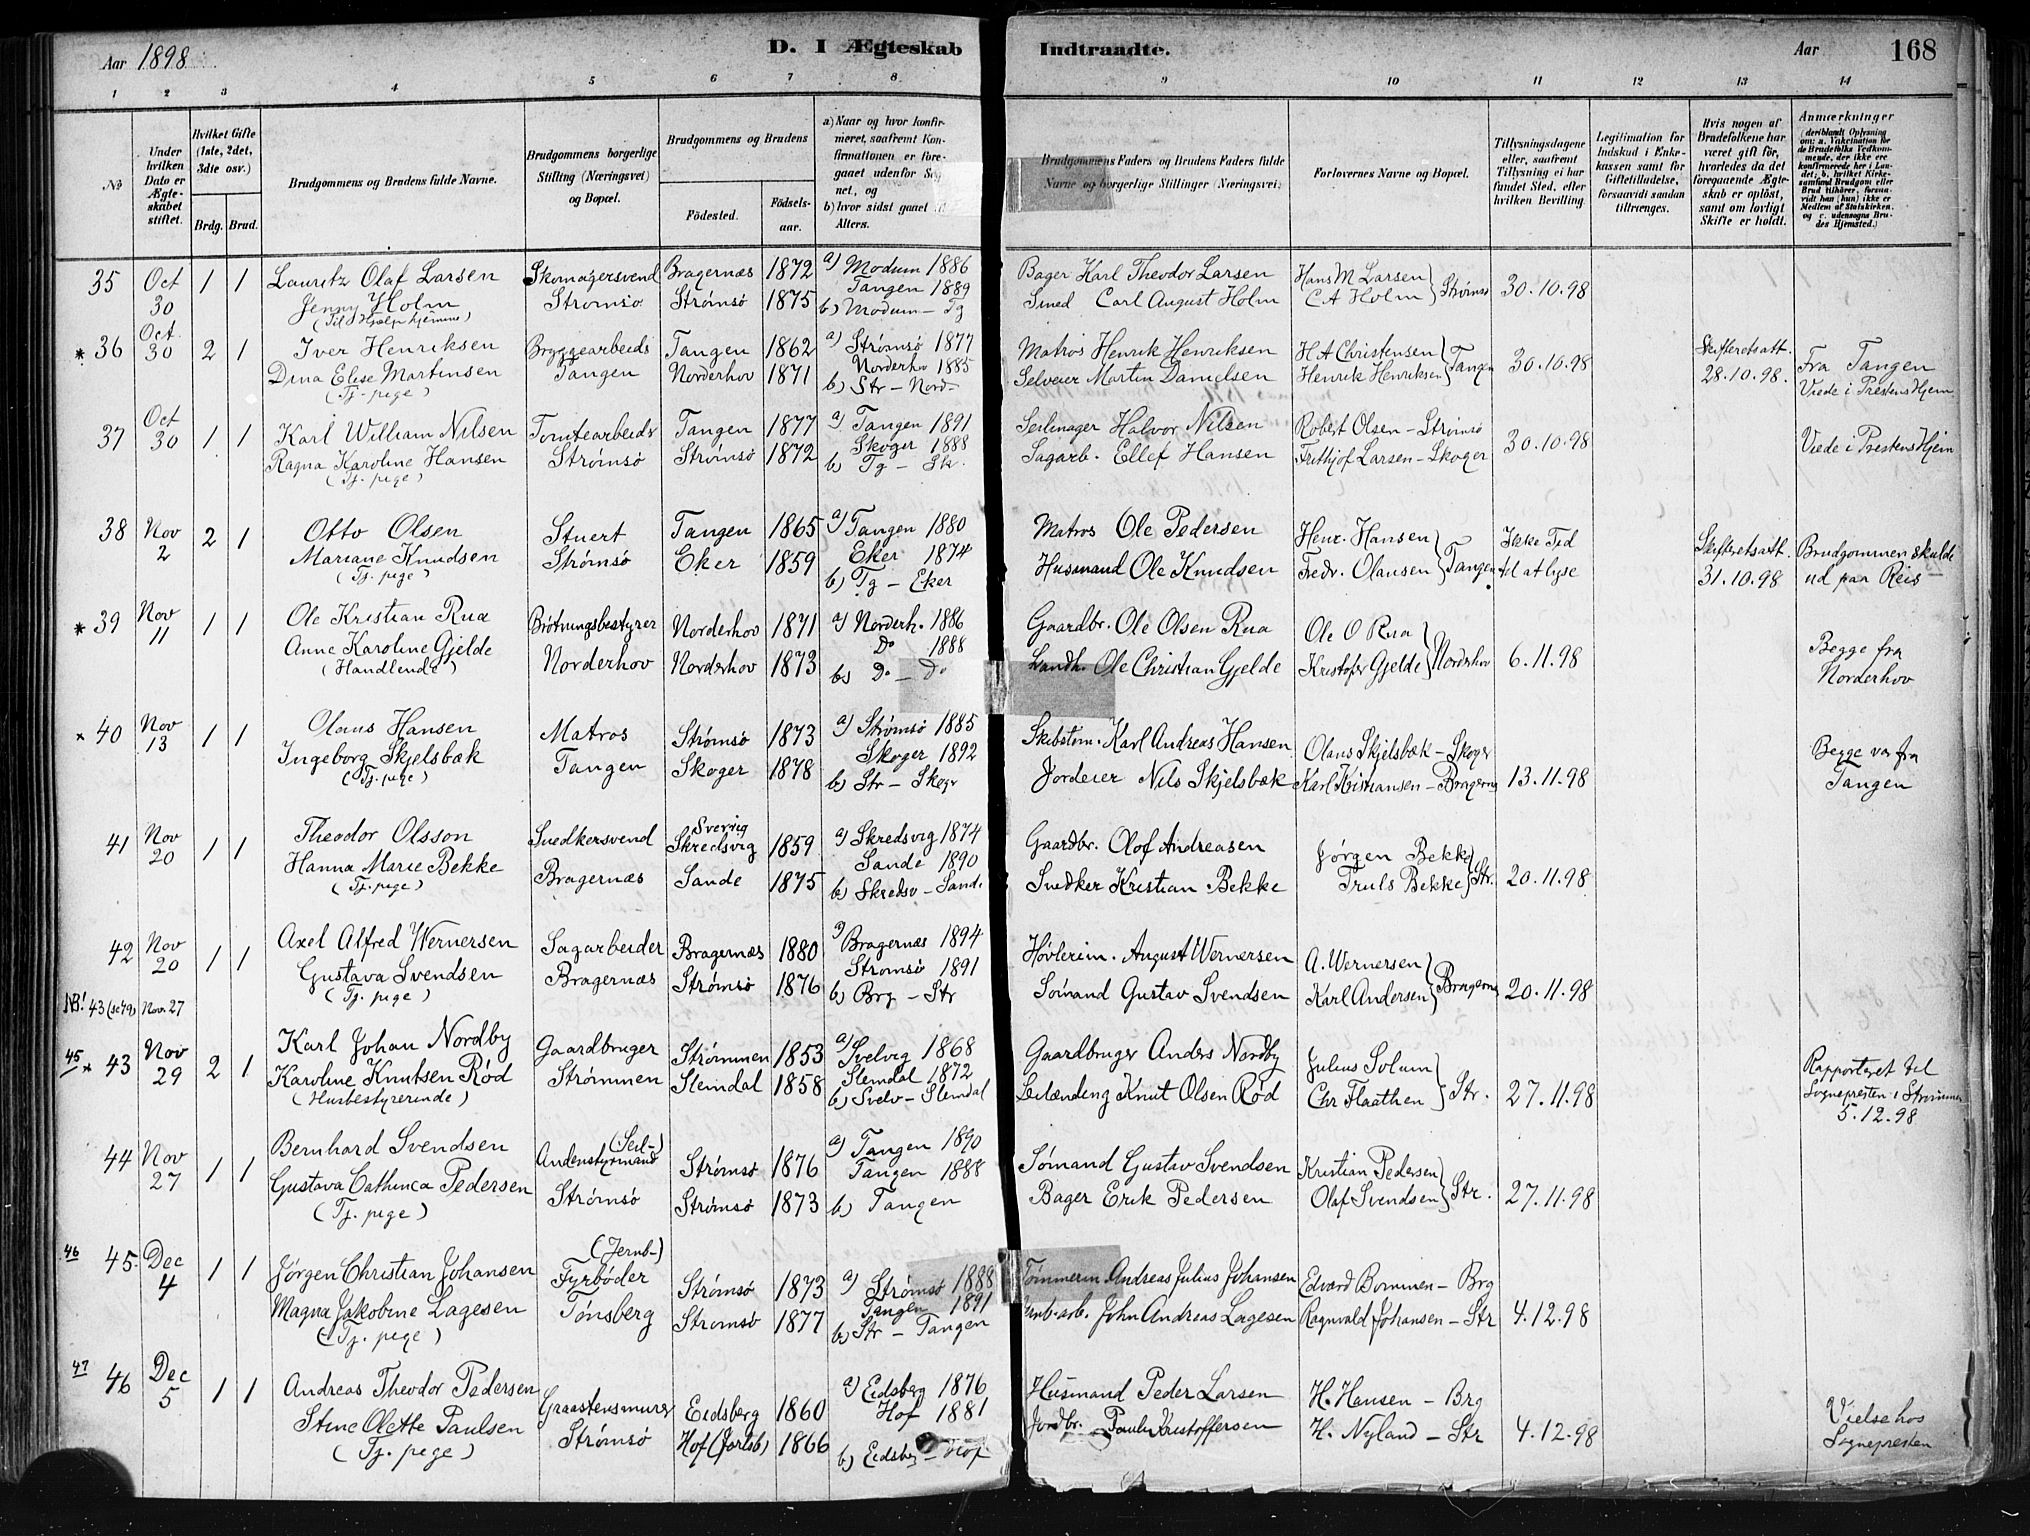 Aar 1898
D. I Ægteskab Indtraadte.
Aar
168
1 2 3 4 5 6 7 8 9 10 11 12 13 14
No
Under hvilken Dato er Ægteskabet stiftet.
Hvilket Gifte (1ste, 2det, 3die osv.)
Brdg. Brud.
Brudgommens og Brudens fulde Navne.
Brudgommens borgerlige Stilling (Næringsvei) og Bopæl.
Brudgommens og Brudens
Fødested.
Fødselsaar.
a) Naar og hvor konfirmeret, saafremt Konfirmationen er foregaaet udenfor Sognet, og
b) hvor sidst gaaet til Alters.
Brudgommens Faders og Brudens Faders fulde Navne og borgerlige Stillinger (Næringsvei)
Forlovernes Navne og Bopæl.
Tillysningsdagene eller, saafremt Tillysning ei har fundet Sted, efter hvilken Bevilling.
Legitimation for Indskud i Enkekassen samt for Giftetilladelse, forsaavidt saadan tiltrænges.
Hvis nogen af Brudefolkene har været gift før, hvorledes da det foregaaende Ægteskab er opløst, samt om lovligt Skifte er holdt.
Anmærkninger (deriblandt Oplysning om: a. Vakcination for de Brudefolks Vedkommende, der ikke ere konfirmerede her i Landet; b. hvilket Kirkesamfund Brudgom eller Brud tilhører, forsaavidt han (hun) ikke er Medlem af Statskirken, og c. udensogns Brudes Hjemsted.)
35 Oct 30 1 1 Lauritz Olaf Larsen Skomagersvend Bragernæs 1872 a) Modum 1886 Bager Karl Theodor Larsen Hans M Larsen Strømsø 30.10.98
Jenny Holm Strømsø Strømsø 1875 Tangen 1889 Smed Carl August Holm C A Holm
(Til Hjælp hjemme) b) Modum - Tg
* 36 Oct. 30 2 1 Iver Henriksen Bryggearbeids Tangen 1862 a) Strømsø 1877 Matros Henrik Henriksen H A Christensen Tangen 30.10.98 Skifteretsatt. 28.10.98. Fra Tangen
Dina Elise Martinsen Tangen Norderhov 1871 Norderhov 1885 Selveier Martin Danielsen Henrik Henriksen Viede i Prestens Hjem
(Tj. pege) b) Str - Nord-
37 Oct 30 1 1 Karl William Nilsen Tomtearbeids Tangen 1877 a) Tangen 1891 Seilmager Halvor Nilsen Robert Olsen - Strømsø 30.10.98 Viede i Prestens Hjem
Ragna Karoline Hansen Strømsø Strømsø 1872 Skoger 1888 Sagarb. Ellef Hansen Frithjof Larsen - Skoger
(Tj. pege) b) Tg - Sk.
38 Nov 2 2 1 Otto Olsen Stuert Tangen 1865 a) Tangen 1880 Matros Ole Pedersen Henr. Hansen Tangen Ikke Tid til at lyse Skifteretsatt. 31.10.98 Brudgommen skulde ud paa Reis
Mariane Knudsen Strømsø Eker 1859 Eker 1874 Husmand Ole Knudsen Fredr. Olausen
(Tj. pege) b) Tg - Eker
* 39 Nov 11 1 1 Ole Kristian Rua Brøtningsbestyrer Norderhov 1871 a) Norderh. 1886 Gaardbr. Ole Olsen Rua Ole O Rua Norderhov 6.11.98 Begge fra Norderhov
Anne Karoline Gjelde Norderhov Norderhov 1873 Do 1888 Landh. Ole Christian Gjelde Kristofer Gjelde
(Handlende) b) Do - Do
* 40 Nov 13 1 1 Olaus Hansen Matros Strømsø 1873 a) Strømsø 1885 Skibstøm. Karl Andreas Hansen Olaus Skjelsbæk - Skoger 13.11.98 Begge var fra Tangen
Ingeborg Skjelsbæk Tangen Skoger 1878 Skoger 1892 Jordeier Nils Skjelsbæk Karl Kristiansen - Bragernæs
(Tj. pege) b) Str - Skogr
41 Nov 20 1 1 Theodor Olsson Snedkersvend Sverrig Skredsvig 1859 a) Skredsvig 1874 Gaardbr. Olof Andreasen Jørgen Bekke Str. 20.11.98
Hanna Marie Bekke Bragernæs Sande 1875 Sande 1890 Snedker Kristian Bekke Truls Bekke
(Tj. pege) b) Skredsv - Sande
42 Nov 20 1 1 Axel Alfred Wernersen Sagarbeider Bragernæs 1880 a) Bragernæs 1894 Høvlerim. August Wernersen A. Wernersen Bragernæs 20.11.98
Gustava Svendsen Bragernæs Strømsø 1876 Strømsø 1891 Sømand Gustav Svendsen Karl Andersen
(Tj. pege) b) Brg - Str
NB! 43 (se 49) Nov. 27
45 * 43 Nov 29 2 1 Karl Johan Nordby Gaardbruger Strømmen 1853 a) Svelvig 1868 Gaardbruger Anders Nordby Julius Solum Str. 27.11.98 Rapporteret til Sognepresten i Strømmen 5.12.98
Karoline Knutsen Rød Strømmen Slemdal 1858 Slemdal 1872 Leilænding Knut Olsen Rød Chr Flaathen
(Husbestyrerinde) b) Svelv - Slemdal
44 Nov 27 1 1 Bernhard Svendsen (Seil-) Andenstyrmand Strømsø 1876 a) Tangen 1890 Sømand Gustav Svendsen Kristian Pedersen Str. 27.11.98
Gustava Cathinca Pedersen Strømsø Strømsø 1873 Tangen 1888 Bager Erik Pedersen Olaf Svendsen
(Tj. pege) b) Tangen
46 45. Dec 4 1 1 Jørgen Christian Johansen (Jernb-) Fyrbøder Strømsø 1873 a) Strømsø 1888 Tømmerm. Andreas Julius Johansen Edvard Bommen - Brg 4.12.98
Magna Jakobine Lagesen Tønsberg Strømsø 1877 Tangen 1891 Jernb.arb. John Andreas Lagesen Ragnvald Johansen - Str
(Tj. pege) b) Str - Tangen
47 46 Dec 5 1 1 Andreas Theodor Pedersen Graastensmurer Eidsberg 1860 a) Eidsberg 1876 Husmand Peder Larsen H. Hansen - Brg 4.12.98 Vielse hos Sognepresten
Stine Olette Paulsen Strømsø Hof (Jarlsb) 1866 Hof 1881 Jordbr. Paul Kristoffersen H. Nyland - Str
(Tj. pege) b) Eidsberg - Hof